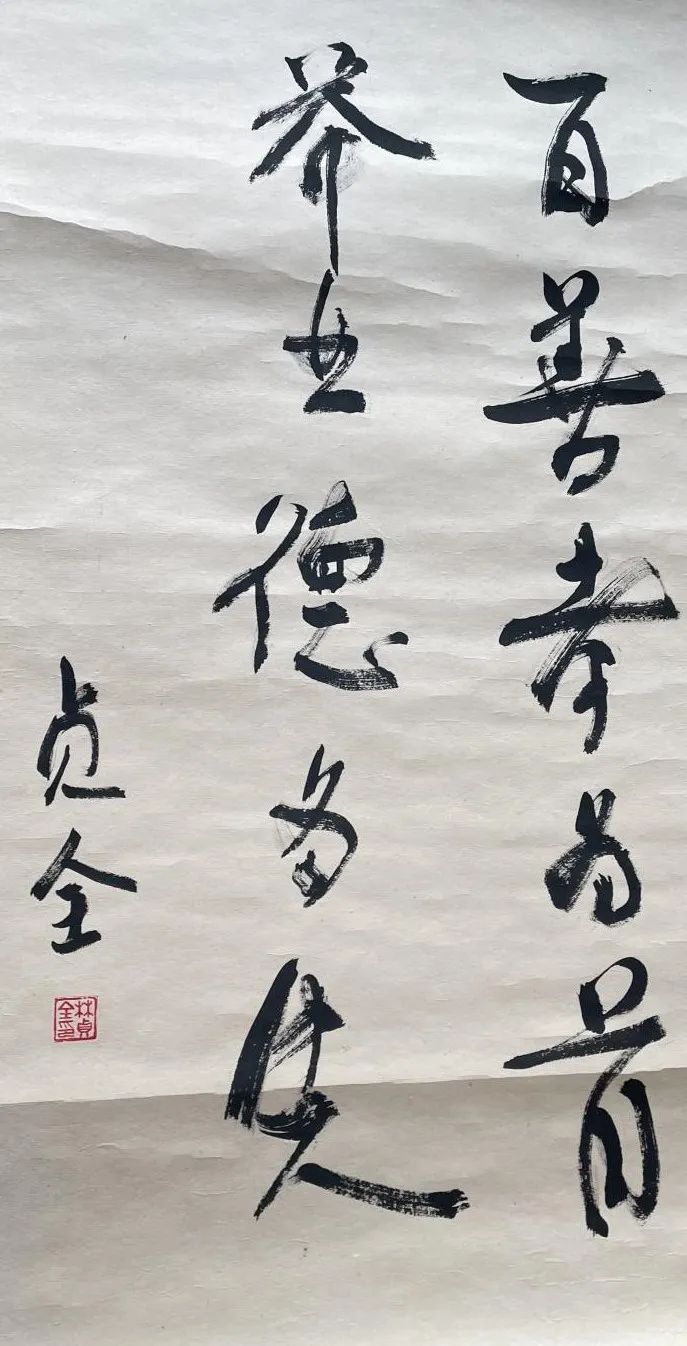 百善孝为首
举世德为先
贞全
林貞全印